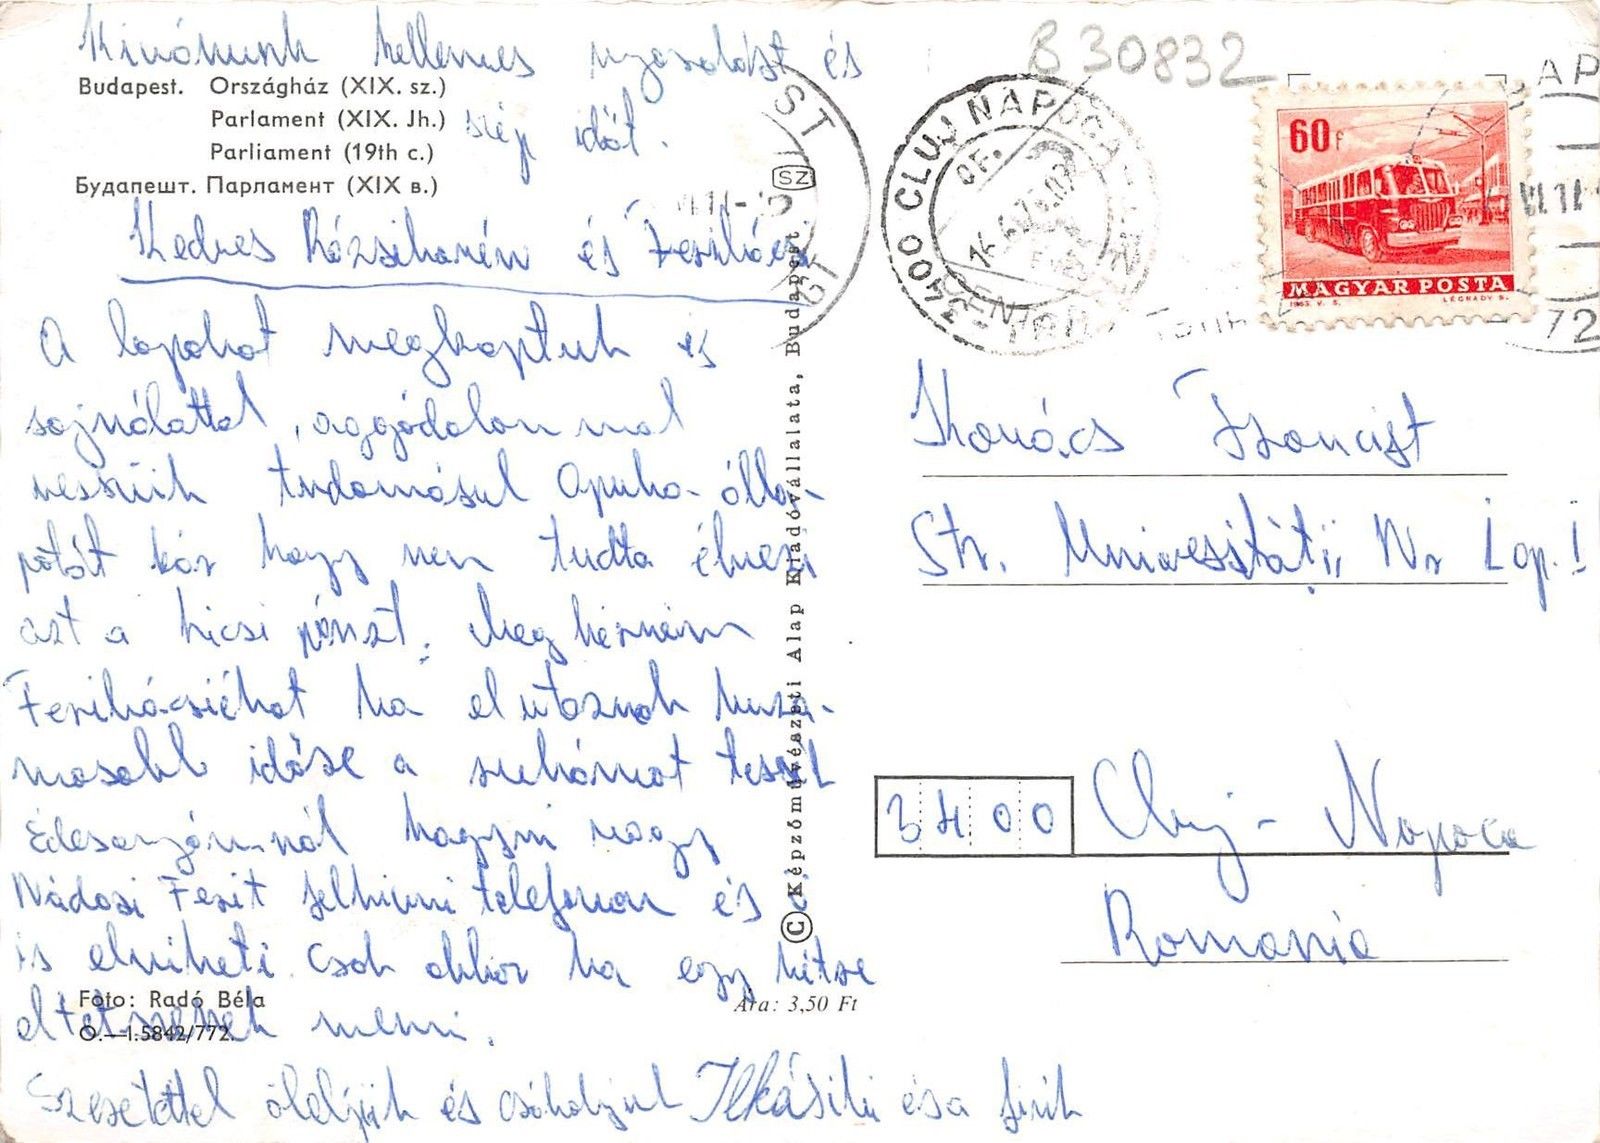 Kivánunk kellemes nyaralást és
szép időt.
Budapest. Országház (XIX. sz.)
Parlament (XIX. Jh.)
Parliament (19th c.)
Будапешт. Парламент (XIX в.)
Kedves Rózsikanéni és Feribácsi
A lapokat megkaptuk és
sajnálattal, aggódalommal
vesszük tudomásul Apuka álla-
potát kár hogy nem tudta élvezni
azt a kicsi pénzt. Meg kérném
Feribácsiékat ha elutaznak husza-
mosabb időre a ruhámat
Édesanyámnál hagyni vagy
Nádasi Ferit felhivni telefonon és
is elviheti. Csak akkor ha egy hétre
el tetszenek menni.
Szeretettel öleljük és csókoljuk Ilkáséki és a fiúk
Foto: Radó Béla
O.—I.5842/772.
Ára: 3,50 Ft
© Képzőművészeti Alap Kiadóvállalata, Budapest
SZ
B 30832
3400 CLUJ NAPOCA
OF.
60 f
MAGYAR POSTA
1963. V. S. LÉGRÁDY S.
72
Kovács Francist
Str. Universitătii Nr 1 ap. 1
3400 Cluj - Napoca
Romania